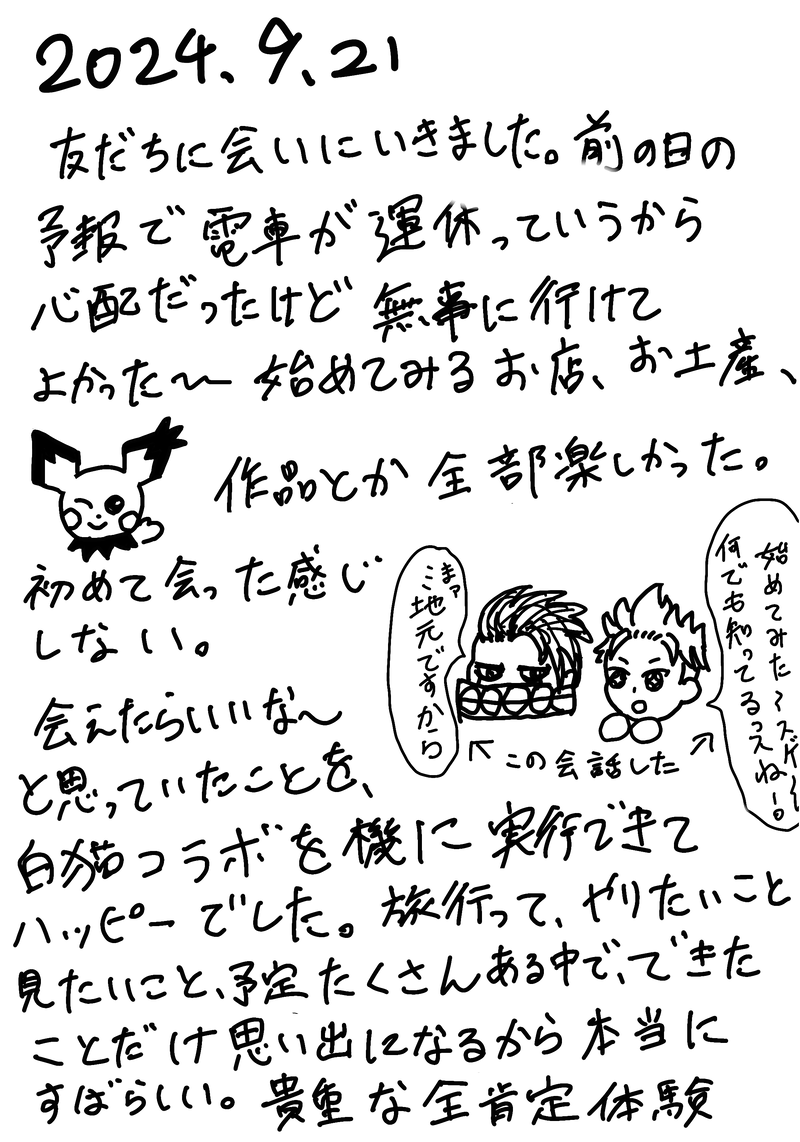 2024.9.21
友だちに会いにいきました。前の日の
予報で電車が運休っていうから
心配だったけど無事に行けて
よかった〜始めてみるお店、お土産、
作品とか全部楽しかった。
初めて会った感じ
しない。
まァ
地元ですから
始めてみた〜スゲー
何でも知ってるっスねー。
この会話した
会えたらいいな〜
と思っていたことを、
白猫コラボを機に実行できて
ハッピーでした。旅行って、やりたいこと
見たいこと、予定たくさんある中で、できた
ことだけ思い出になるから本当に
すばらしい。貴重な全肯定体験